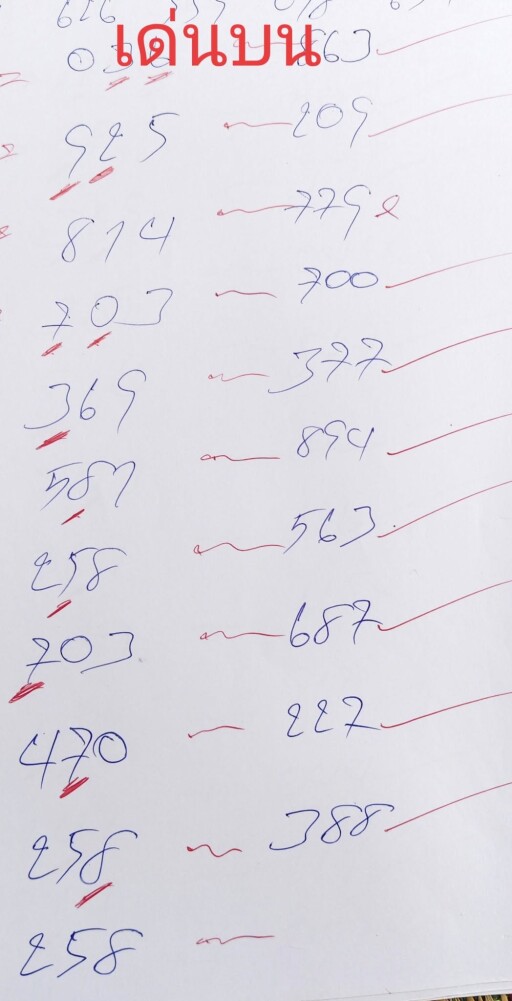 เด่นบน
863
925 209
814 779
703 700
369 377
587 894
258 563
703 687
470 227
258 388
258